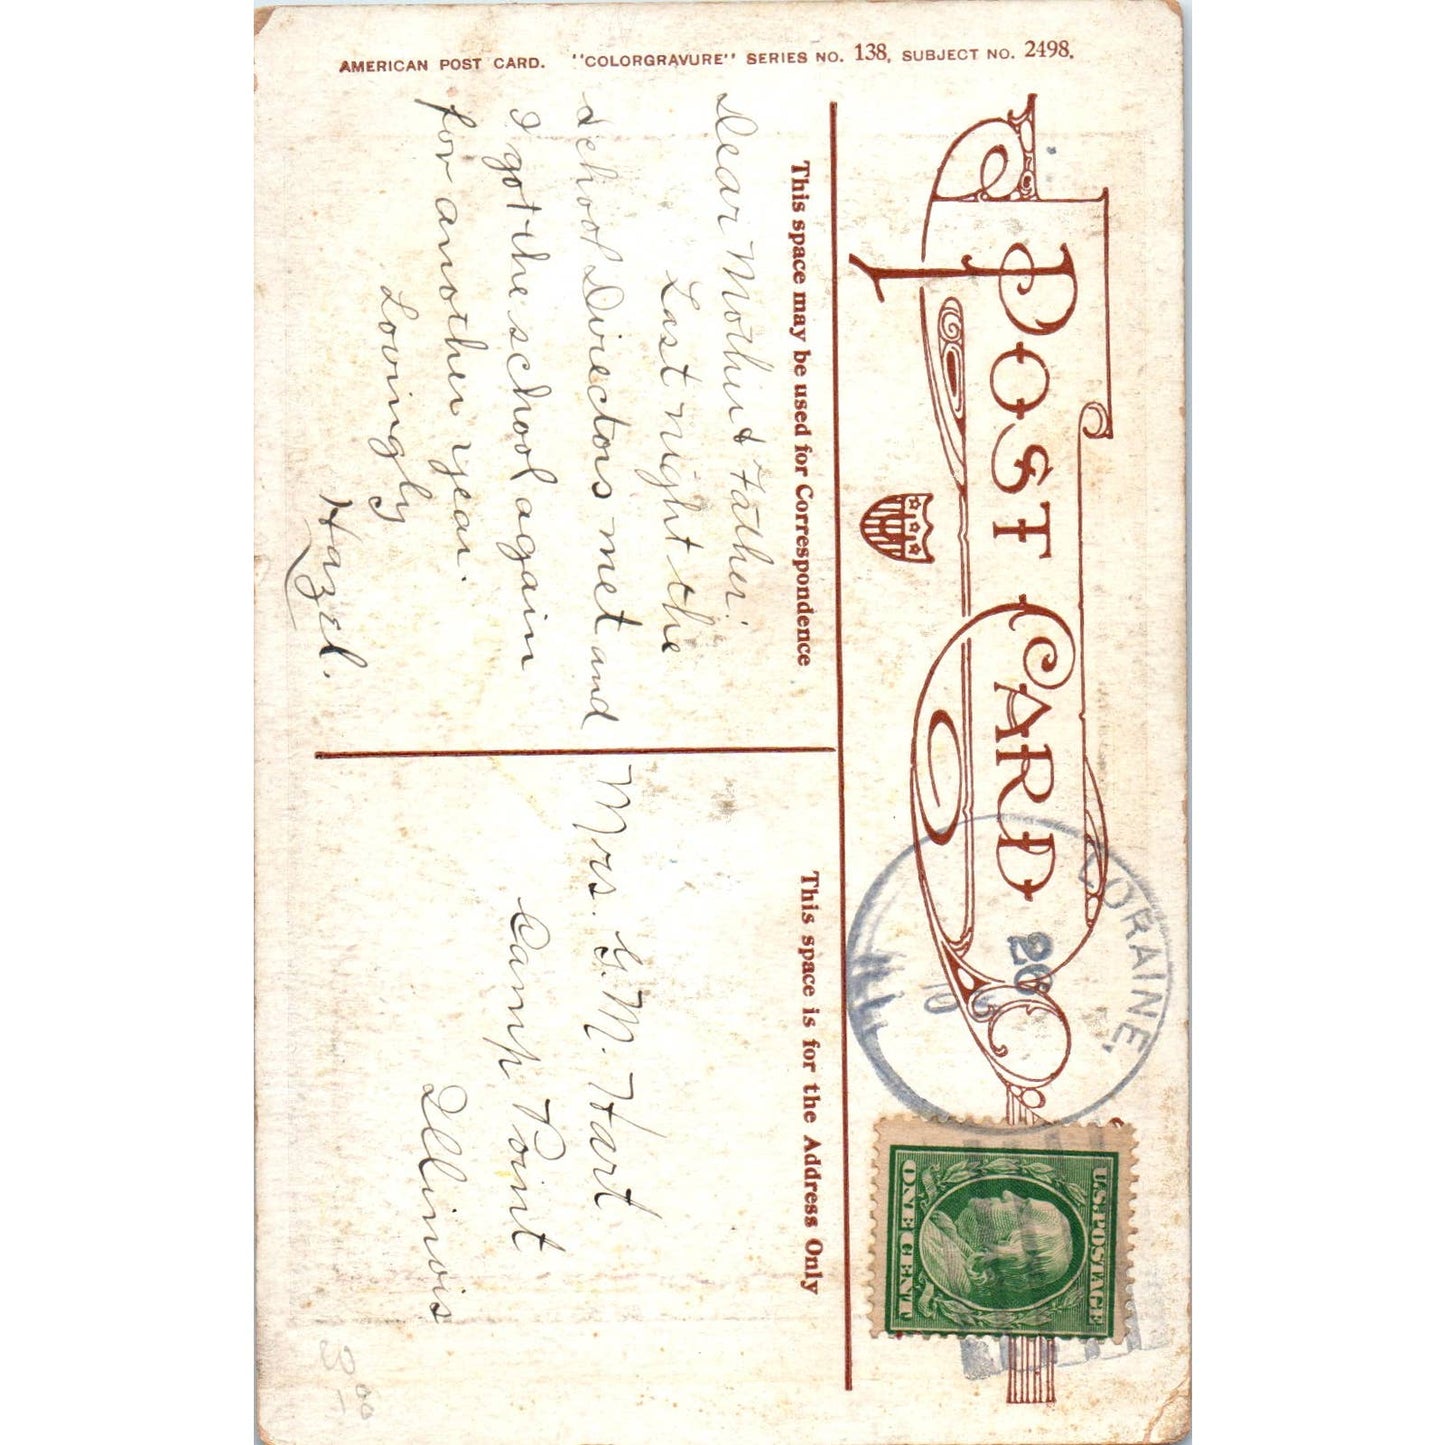 AMERICAN POST CARD. "COLORGRAVURE" SERIES NO. 138, SUBJECT NO. 2498.
POST CARD
This space may be used for Correspondence
Dear Mother & Father:
Last night the
school Directors met and
I got the school again
for another year.
Lovingly
Hazel.
This space is for the Address Only
Mrs. G. M. Hart
Camp Point
Illinois
LORAINE,
26
ILL
U.S. POSTAGE
ONE CENT